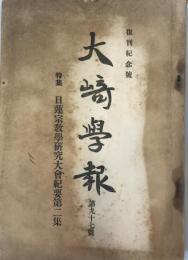 復刊紀念號
大崎學報
第九十七號
特集 日蓮宗教學研究大會紀要第二集